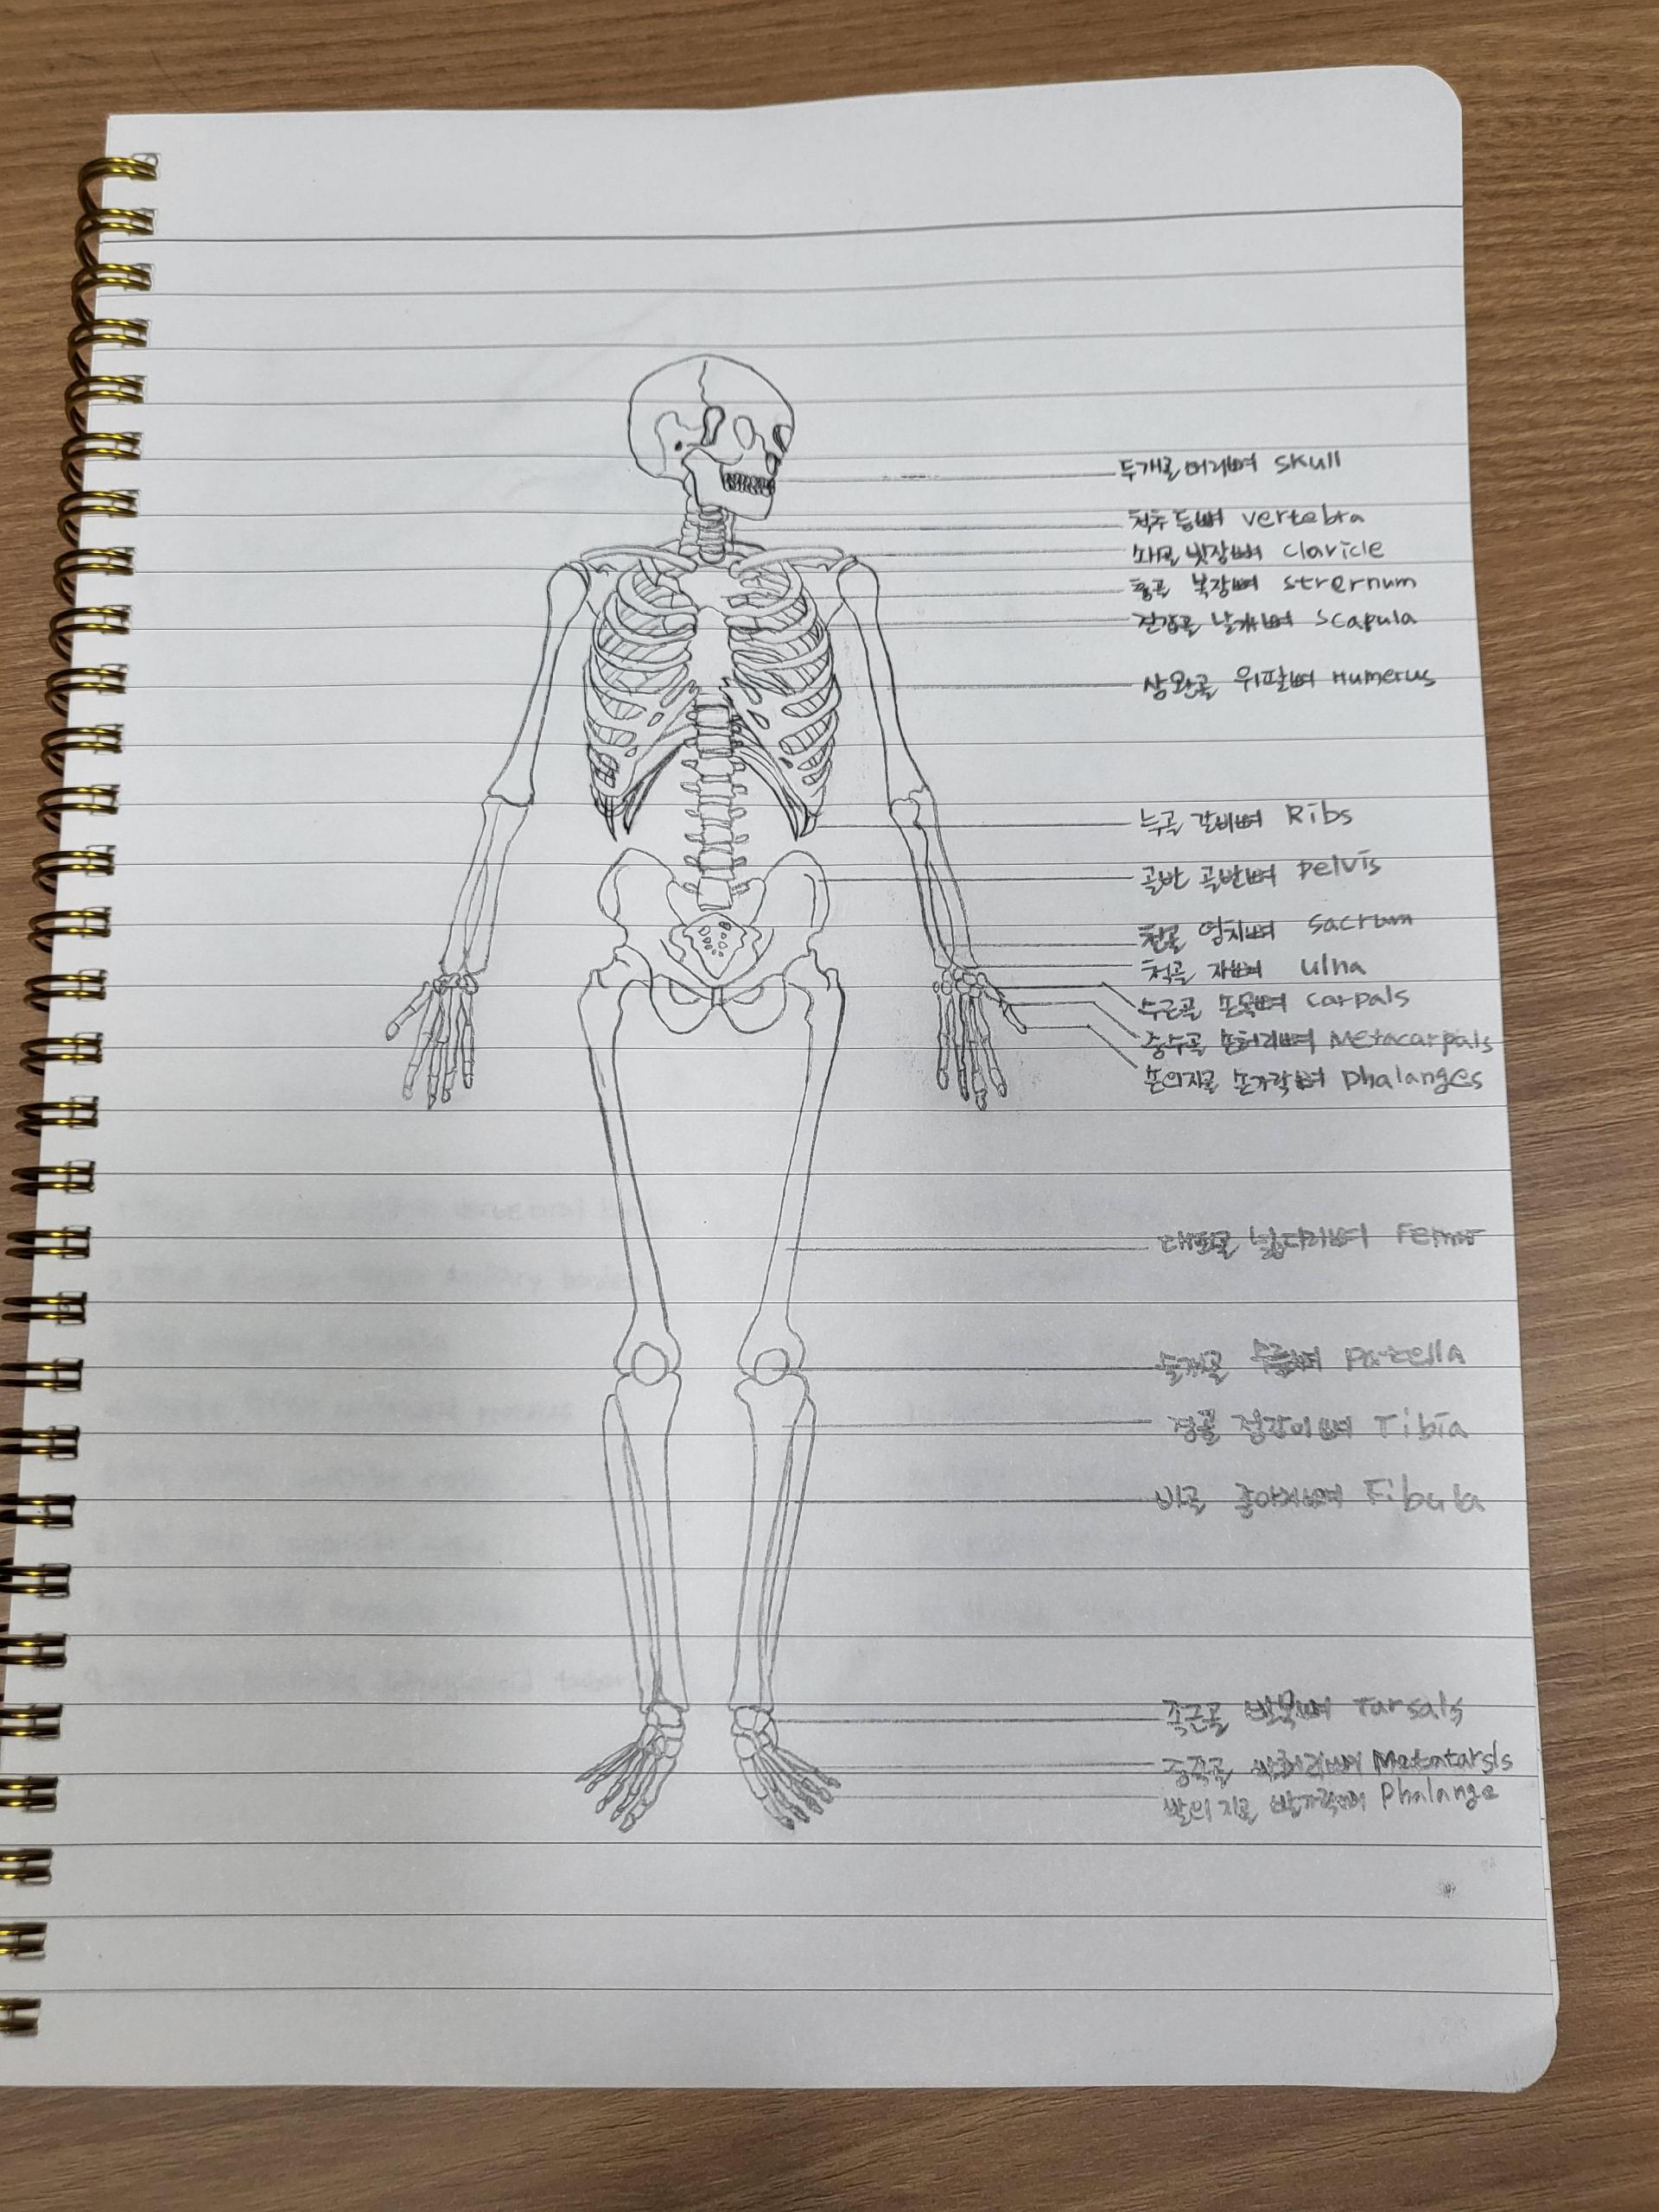 두개골 머리뼈 skull
척추 등뼈 vertebra
쇄골 빗장뼈 claricle
흉골 복장뼈 strernum
견갑골 날개뼈 scapula
상완골 위팔뼈 Humerus
늑골 갈비뼈 Ribs
골반 골반뼈 pelvis
천골 엉치뼈 sacrum
척골 자뼈 ulna
수근골 손목뼈 carpals
중수골 손허리뼈 Metacarpals
손의지골 손가락뼈 phalanges
대퇴골 넙다리뼈 Femur
슬개골 무릎뼈 patella
경골 정강이뼈 Tibia
비골 종아리뼈 Fibula
족근골 발목뼈 Tarsals
중족골 발허리뼈 Metatarsls
발의 지골 발가락뼈 Phalange